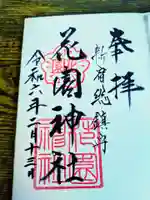 奉拝
新宿総鎮守
花園神社
令和六年二月十三日